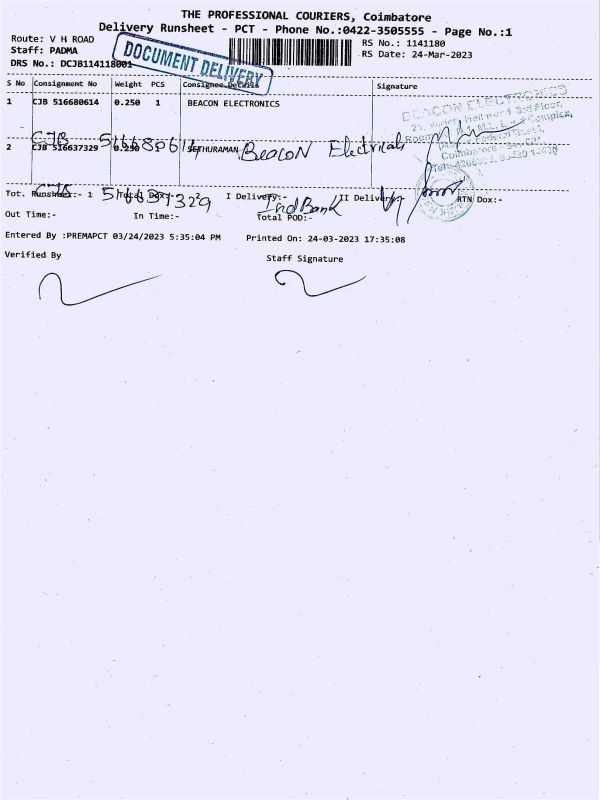 THE PROFESSIONAL COURIERS, Coimbatore
Delivery Runsheet - PCT - Phone No.:0422-3505555 - Page No.:1
Route: V H ROAD
RS No.: 1141180
Staff: PADMA
RS Date: 24-Mar-2023
DRS No.: DCJB114118001
DOCUMENT DELIVERY
S No Consignment No Weight PCS Consignee Details Signature
1 CJB 516680614 0.250 1 BEACON ELECTRONICS
BEACON ELECTRONICS
CJB 516680614 Beacon Electricals
2 CJB 516637329 0.250 SETHURAMAN
Coimbatore
CJB 516637329 IndBank
Tot. Runsheet:- 1 Total Dox:- 2 I Delivery:- II Delivery:- RTN Dox:-
Out Time:- In Time:- Total POD:-
Entered By :PREMAPCT 03/24/2023 5:35:04 PM Printed On: 24-03-2023 17:35:08
Verified By Staff Signature